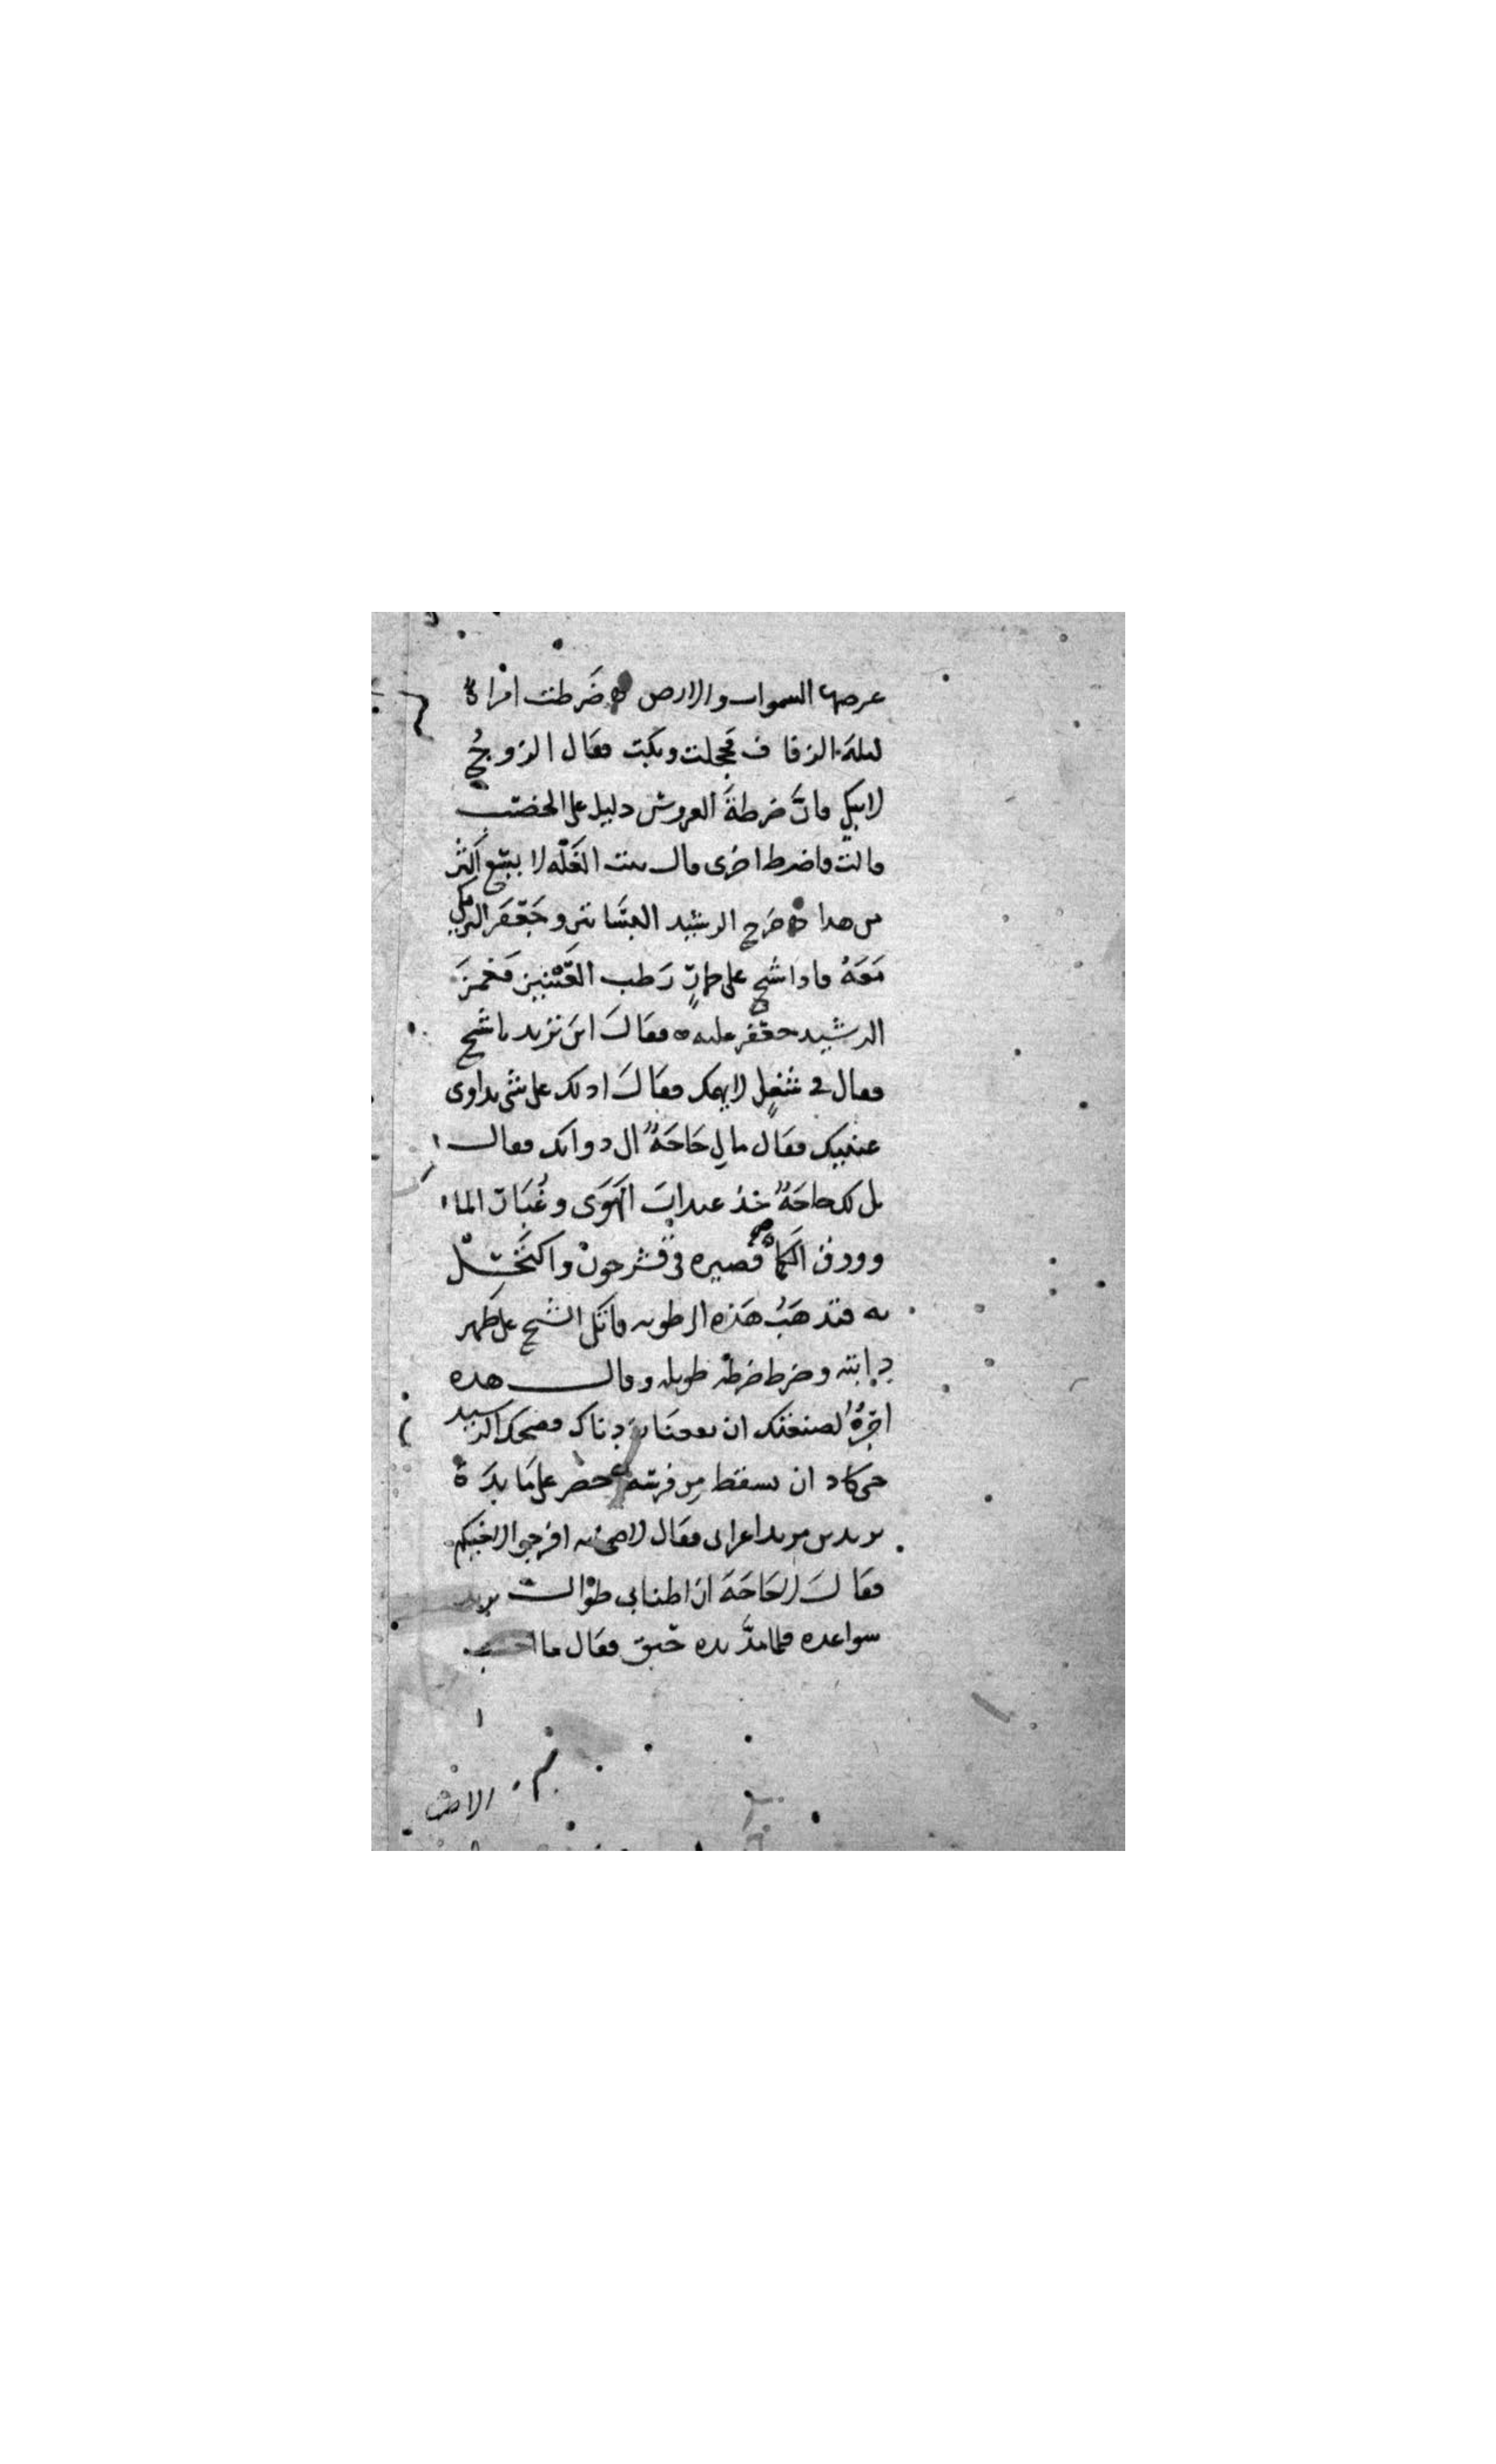 عرضها السموات والارض ضَرطت امراة
ليلة الزفاف فخجلت وبكت فقال الزوج
لا تبكي فان ضرطة العروس دليل على الخصب
قالت فاضرط اخرى قال بيت الغلّه لا يسع اكثر
من هذا خرج الرشيد العباسى وجَعْفَر البرمكي
مَعَهُ فاذا شيخ على حمارٍ رَطب العَيْنين فغمز
الرشيد جعفر عليه فقالَ اين تريد يا شيخ
فقال في شغلٍ لا يهمك فقالَ ادلك على شى يداوى
عينيك فقال مالي حَاجَةٌ الى دوائك فقال
بل لك حاجَةٌ خذ عيدانَ الهَوَى وغُبَارَ الماء
وورق الكماه فصيره في قشر جوز واكتحِل
به فتذهَبُ هَذه الرطوبه فاتكى الشيخ على ظهر
دابته وضرط ضرطه طويله وقال هذه
اجرةٌ لصنعتك ان نفعتنا زدناك فضحك الرشيد
حتى كاد ان يسقط من فرسه حضر على مايدَة
يزيد بن مزيد اعرابى فقال لاصحابه افرجوا لاخيكم
فقالَ لا حَاجَةَ ان اطنابي طوالٌ يريد
سواعده فلما مدَّ يده حَبَق فقال ما احسب
الاطناب